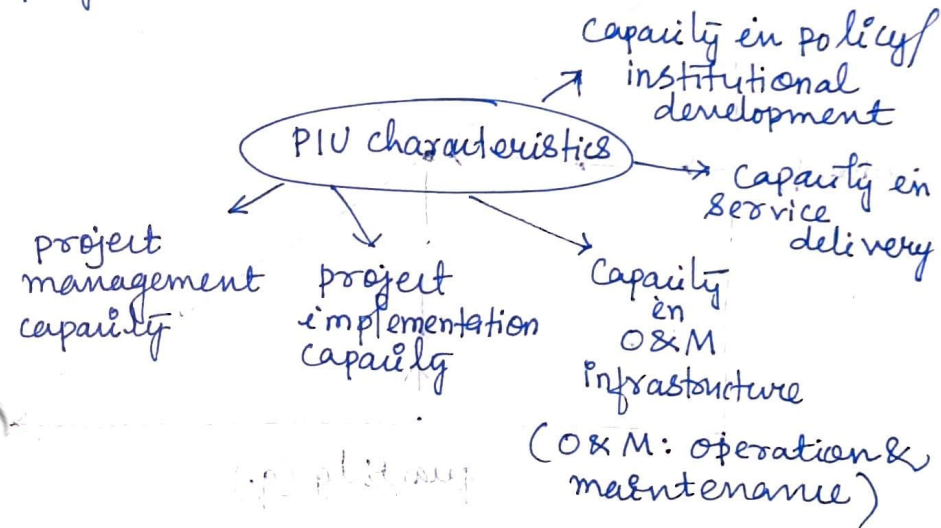 capacity in policy/
institutional
development
PIU characteristics
capacity in
service
delivery
project
management
capacity
project
implementation
capacity
capacity
in
O&M
infrastructure
(O&M: operation &
maintenance)